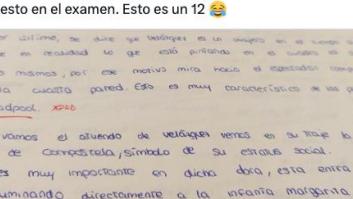 esto en el examen. Esto es un 12 😂
se dice que Velázquez es un viajero en el tiempo
en realidad lo que está pintando en el cuadro es
mismos, por ese motivo mira hacia el espectador
cuarta pared. Esto es muy característico de
adpool.
vamos el atuendo de Velázquez vemos en su traje la
de Compostela, símbolo de su estatus social.
es muy importante en dicha obra, esta entra
uminando directamente a la infanta Margarita